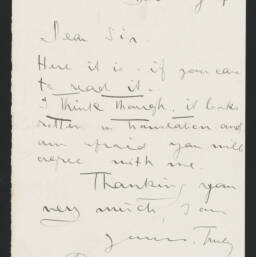 Dear Sir.
Here it is - if you care
to read it.
I think though, it looks
rotten in translation and
am afraid you will
agree with me.
Thanking you
very much, I am
yours. Truly